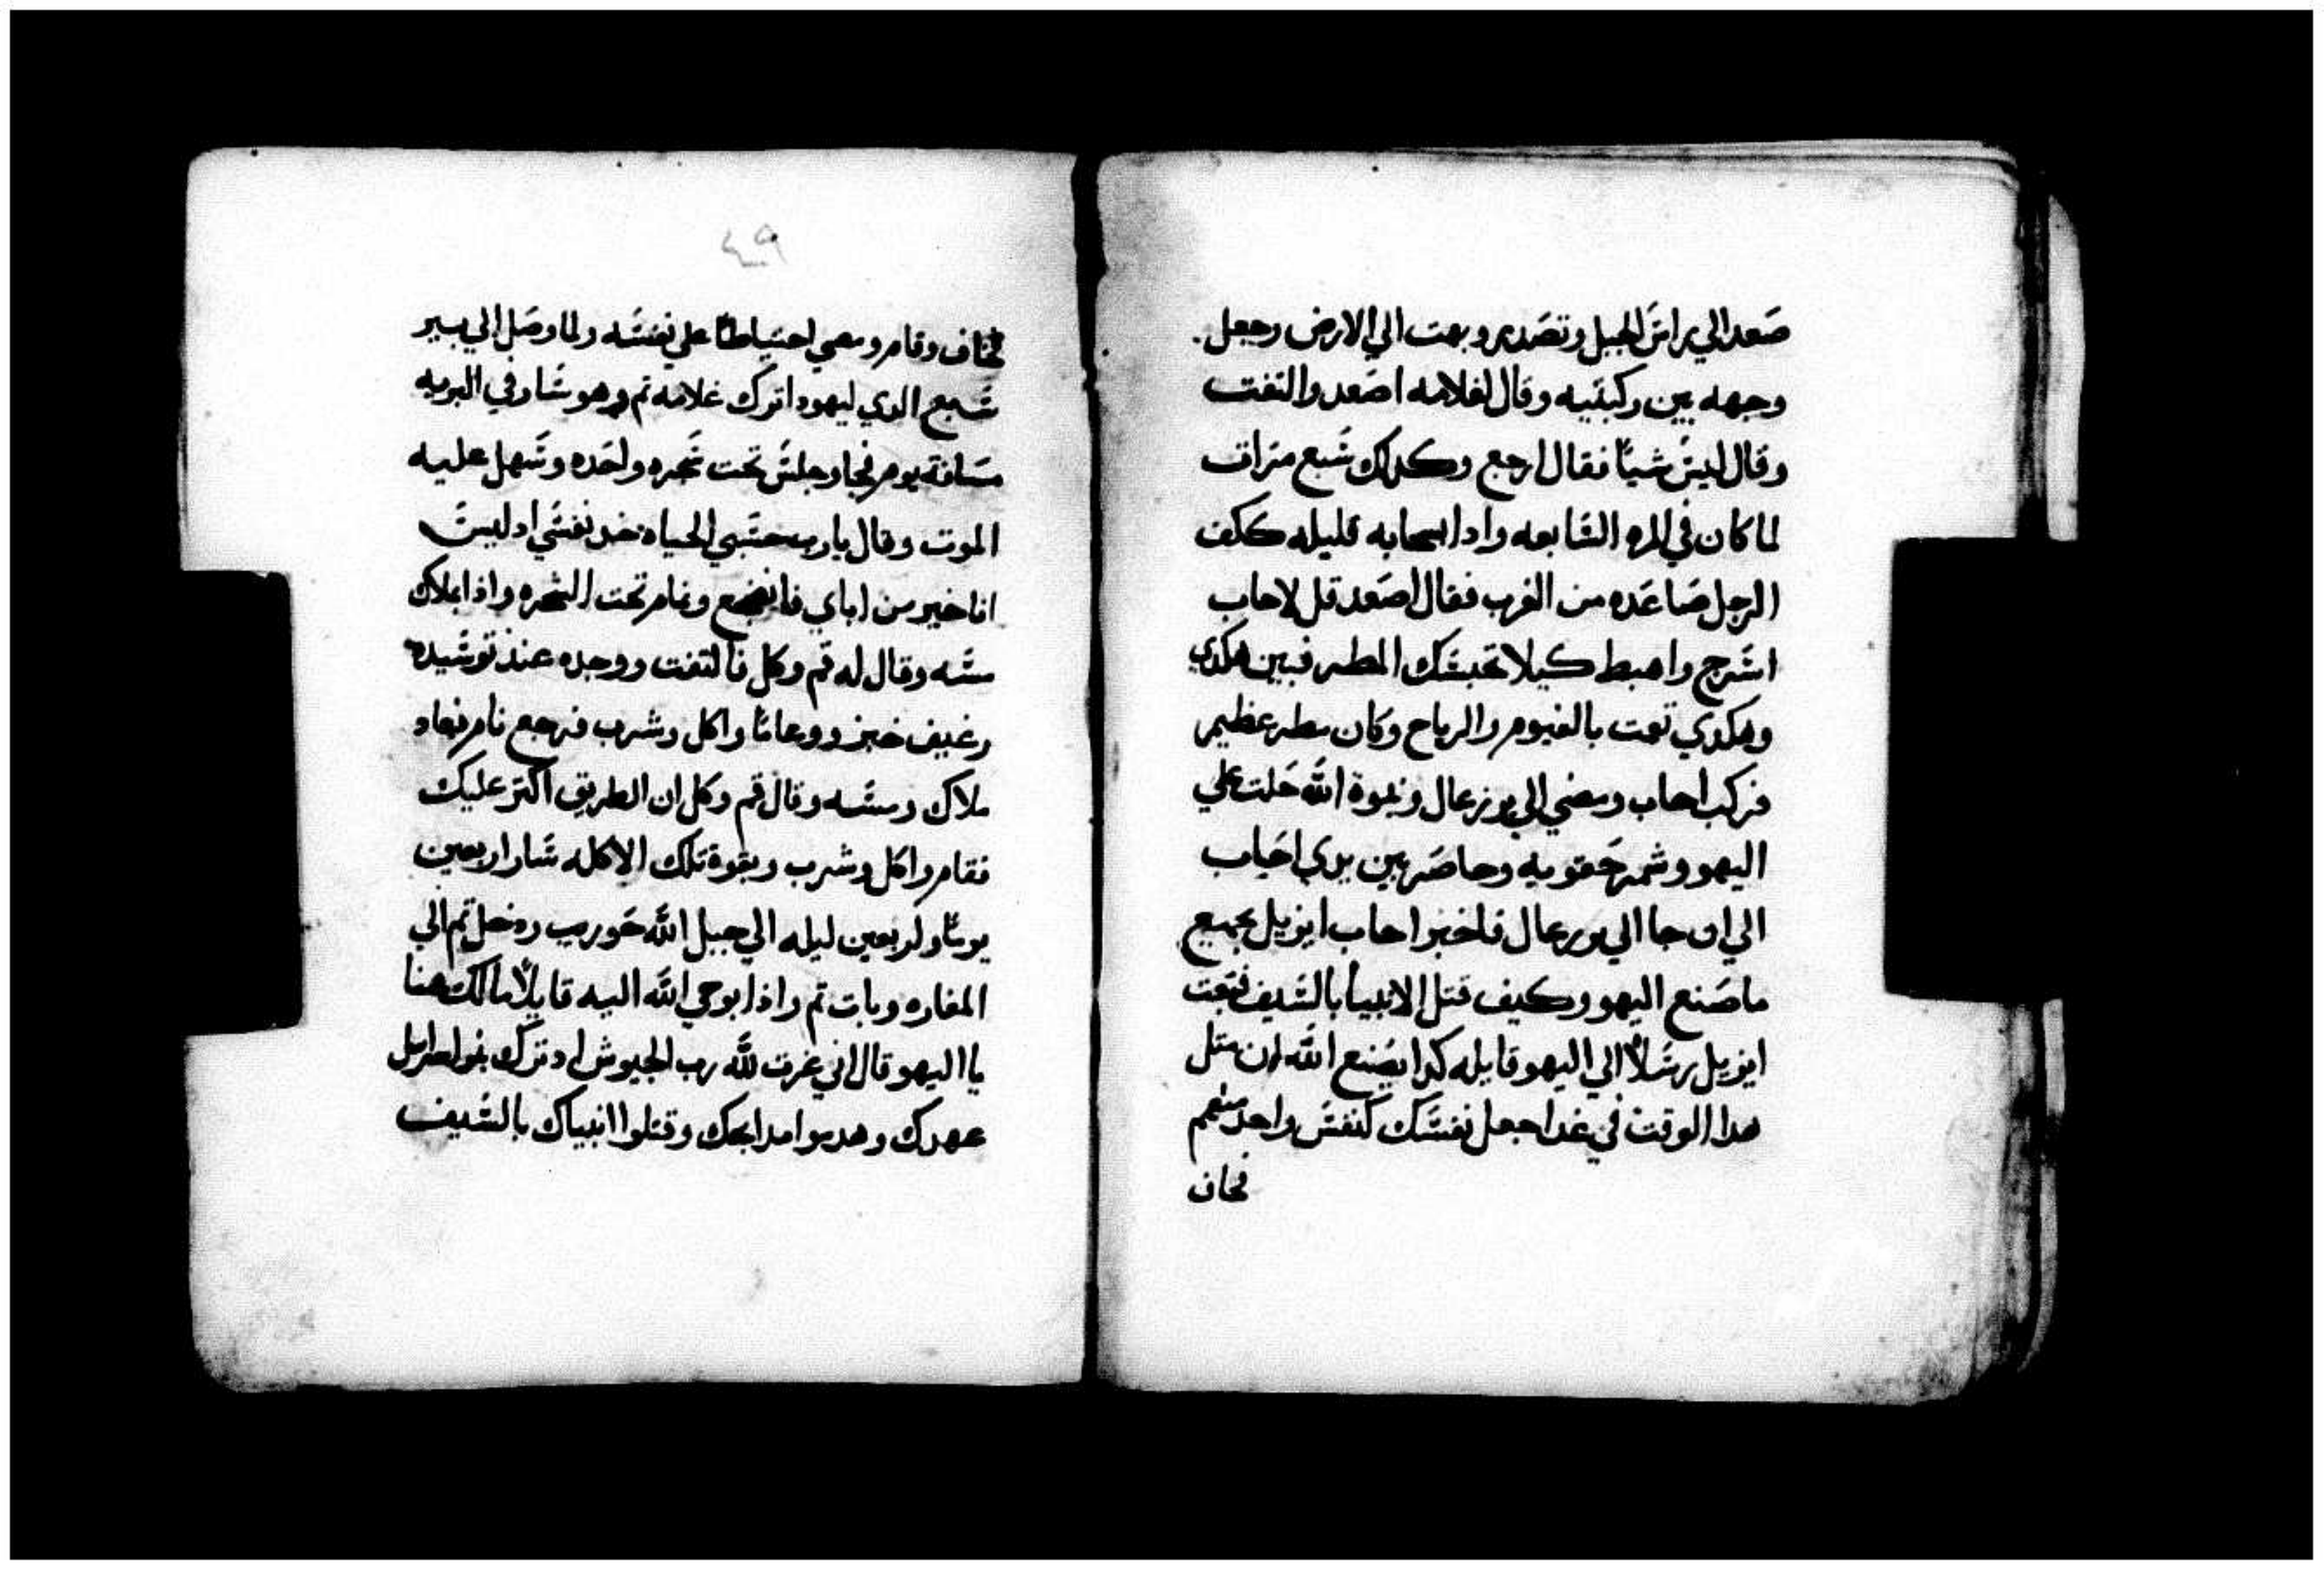 صعد الي راس الجبل وتصدر وبهت الي الارض وجعل
وجهه بين ركبتيه وقال لغلامه اصعد والتفت
وقال ليس شياً فقال ارجع وكدلك سبع مرات
لما كان في المره السابعه وادا سحابه قليله ككف
الرجل صاعده من الغرب فقال اصعد قل لاحاب
اسرج واهبط كيلا تحبسك المطر فبين هكدي
وهكدي تمت بالغيوم والرياح وكان مطر عظيم
فركب احاب ومضي الي يوزرعال ونبوة الله حلت علي
اليهو وشمر حقويه وحاضر بين يدي احاب
الي ان جا الي يوزرعال فاخبر احاب ايزبل بجميع
ماصنع اليهو وكيف قتل الانبيا بالسيف فبعتت
ايزبل رسلاً الي اليهو قايله كدا يصنع الله ان متل
هدا الوقت في غد اجعل نفسك كنفس واحد منهم
فخاف
٤٩
فخاف وقام ومضي احتياطاً علي نفسه ولما وصل الي بير
سبع الدي ليهودا ترك غلامه تم وهو سار في البريه
مسافة يوم فجا وجلس تحت شجره واحده وسهل عليه
الموت وقال يارب حسبي الحياه خد نفسي اد ليس
انا خير من اباي فانضجع ونام تحت الشجره واذا بملاك
مسه وقال له قم وكل فالتفت ووجد عند توسيده
رغيف خبز ووعاماً واكل وشرب فرجع نام فعاد
ملاك ومسه وقال قم وكل ان الطريق اكتر عليك
فقام واكل وشرب وبقوة تلك الاكله سار اربعين
يوماً واربعين ليله الي جبل الله حوريب ودخل تم الي
المغاره وبات تم واذا بوحي الله اليه قايلاً مالك هنا
يا اليهو قال اني غرت لله رب الجيوش اد ترك بنو اسرايل
عهدك وهدموا مدابحك وقتلوا انبياك بالسيف